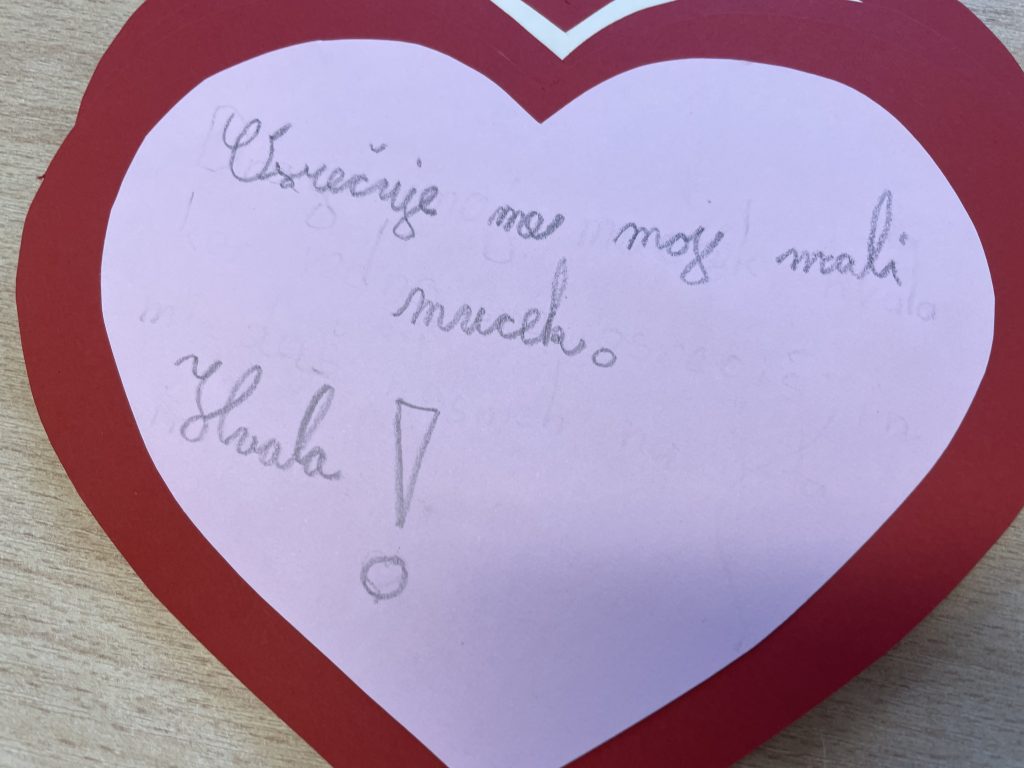 Osrečuje me moj mali
mucek.
Hvala!